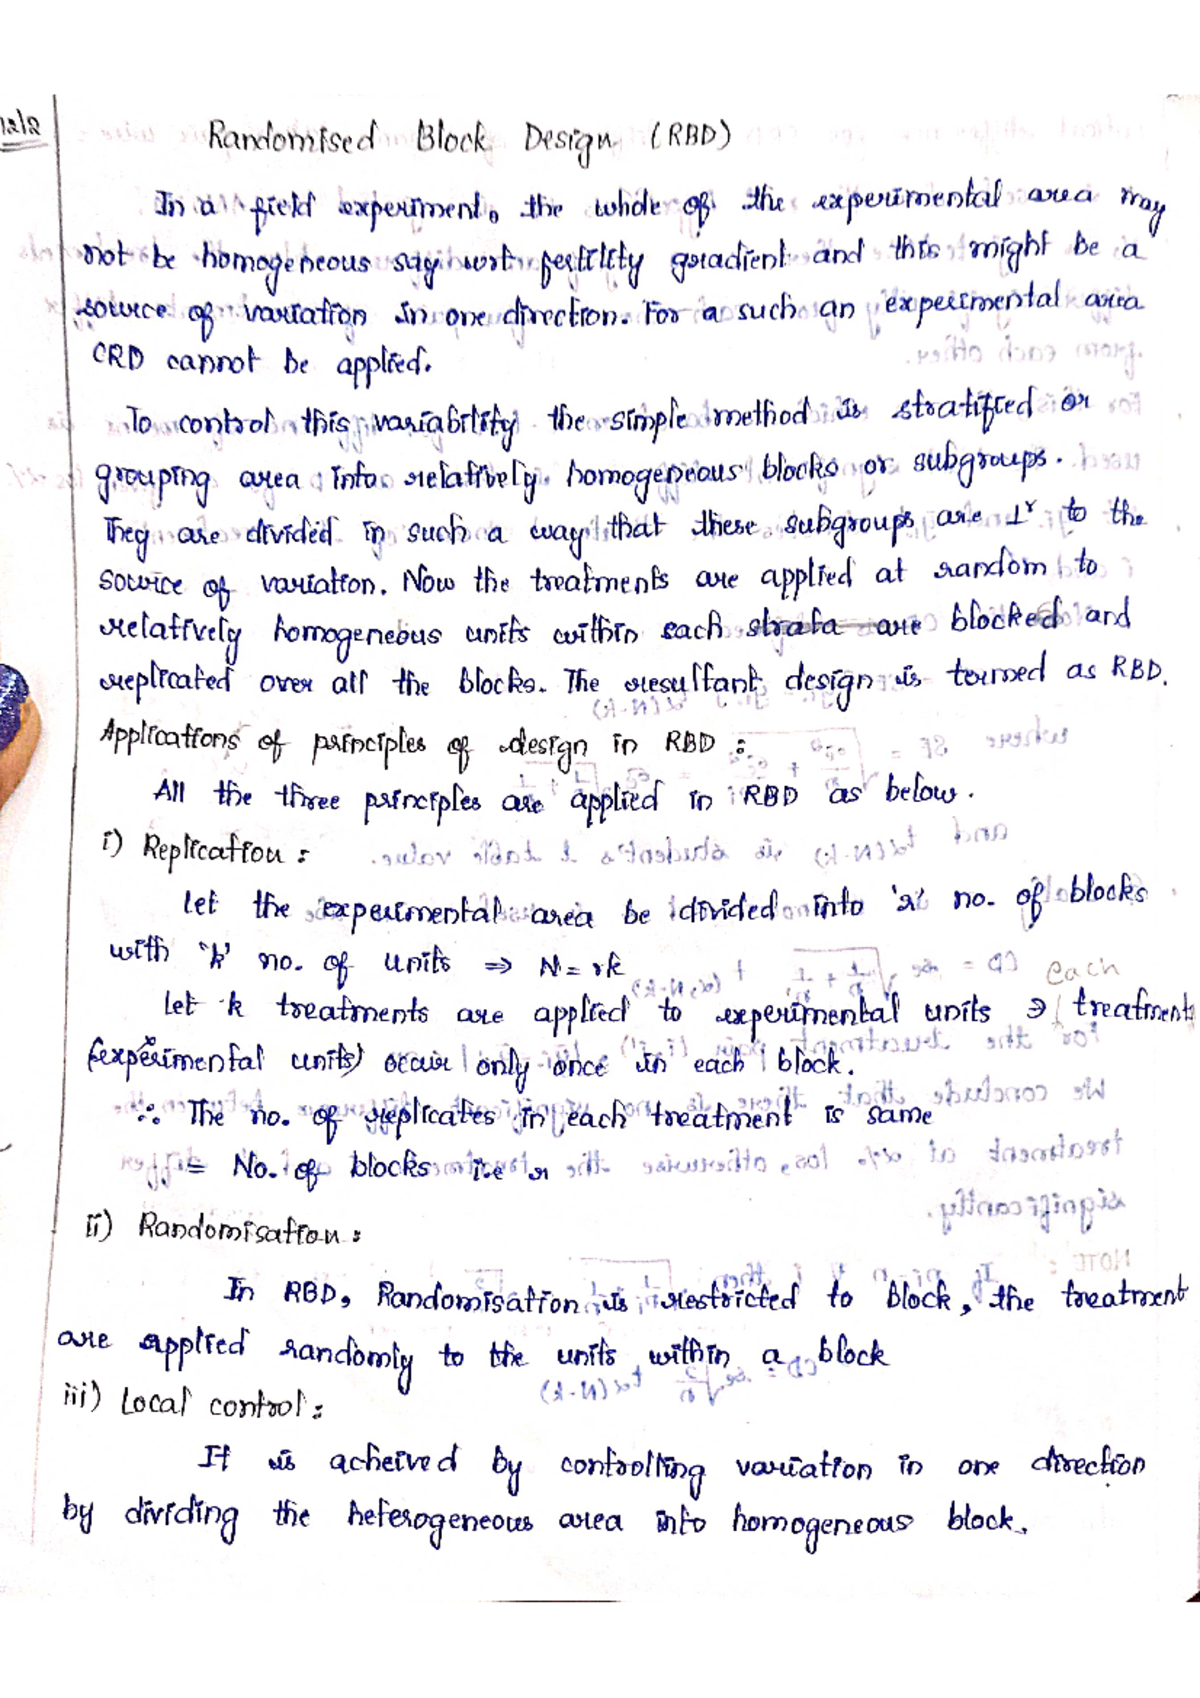 12/2
Randomised Block Design (RBD)
In a field experiment, the whole of the experimental area may
not be homogeneous say wrt fertility gradient and this might be a
source of variation in one direction. For a such an experimental area
CRD cannot be applied.
To control this variability the simple method is stratified or
grouping area into relatively homogeneous blocks or subgroups.
They are divided in such a way that these subgroups are ⊥r to the
source of variation. Now the treatments are applied at random to
relatively homogeneous units within each strata are blocked and
replicated over all the blocks. The resultant design is termed as RBD.
Applications of principles of design in RBD :
All the three principles are applied in RBD as below.
i) Replication :
Let the experimental area be divided into 'r' no. of blocks
with 'k' no. of units ⇒ N = rk
each
Let k treatments are applied to experimental units ∋ treatment
(experimental units) occur only once in each block.
∴ The no. of replicates in each treatment is same
= No. of blocks i.e r
ii) Randomisation :
In RBD, Randomisation is restricted to block, the treatment
are applied randomly to the units within a block
iii) Local control :
It is acheived by controlling variation in one direction
by dividing the heterogeneous area into homogeneous block.